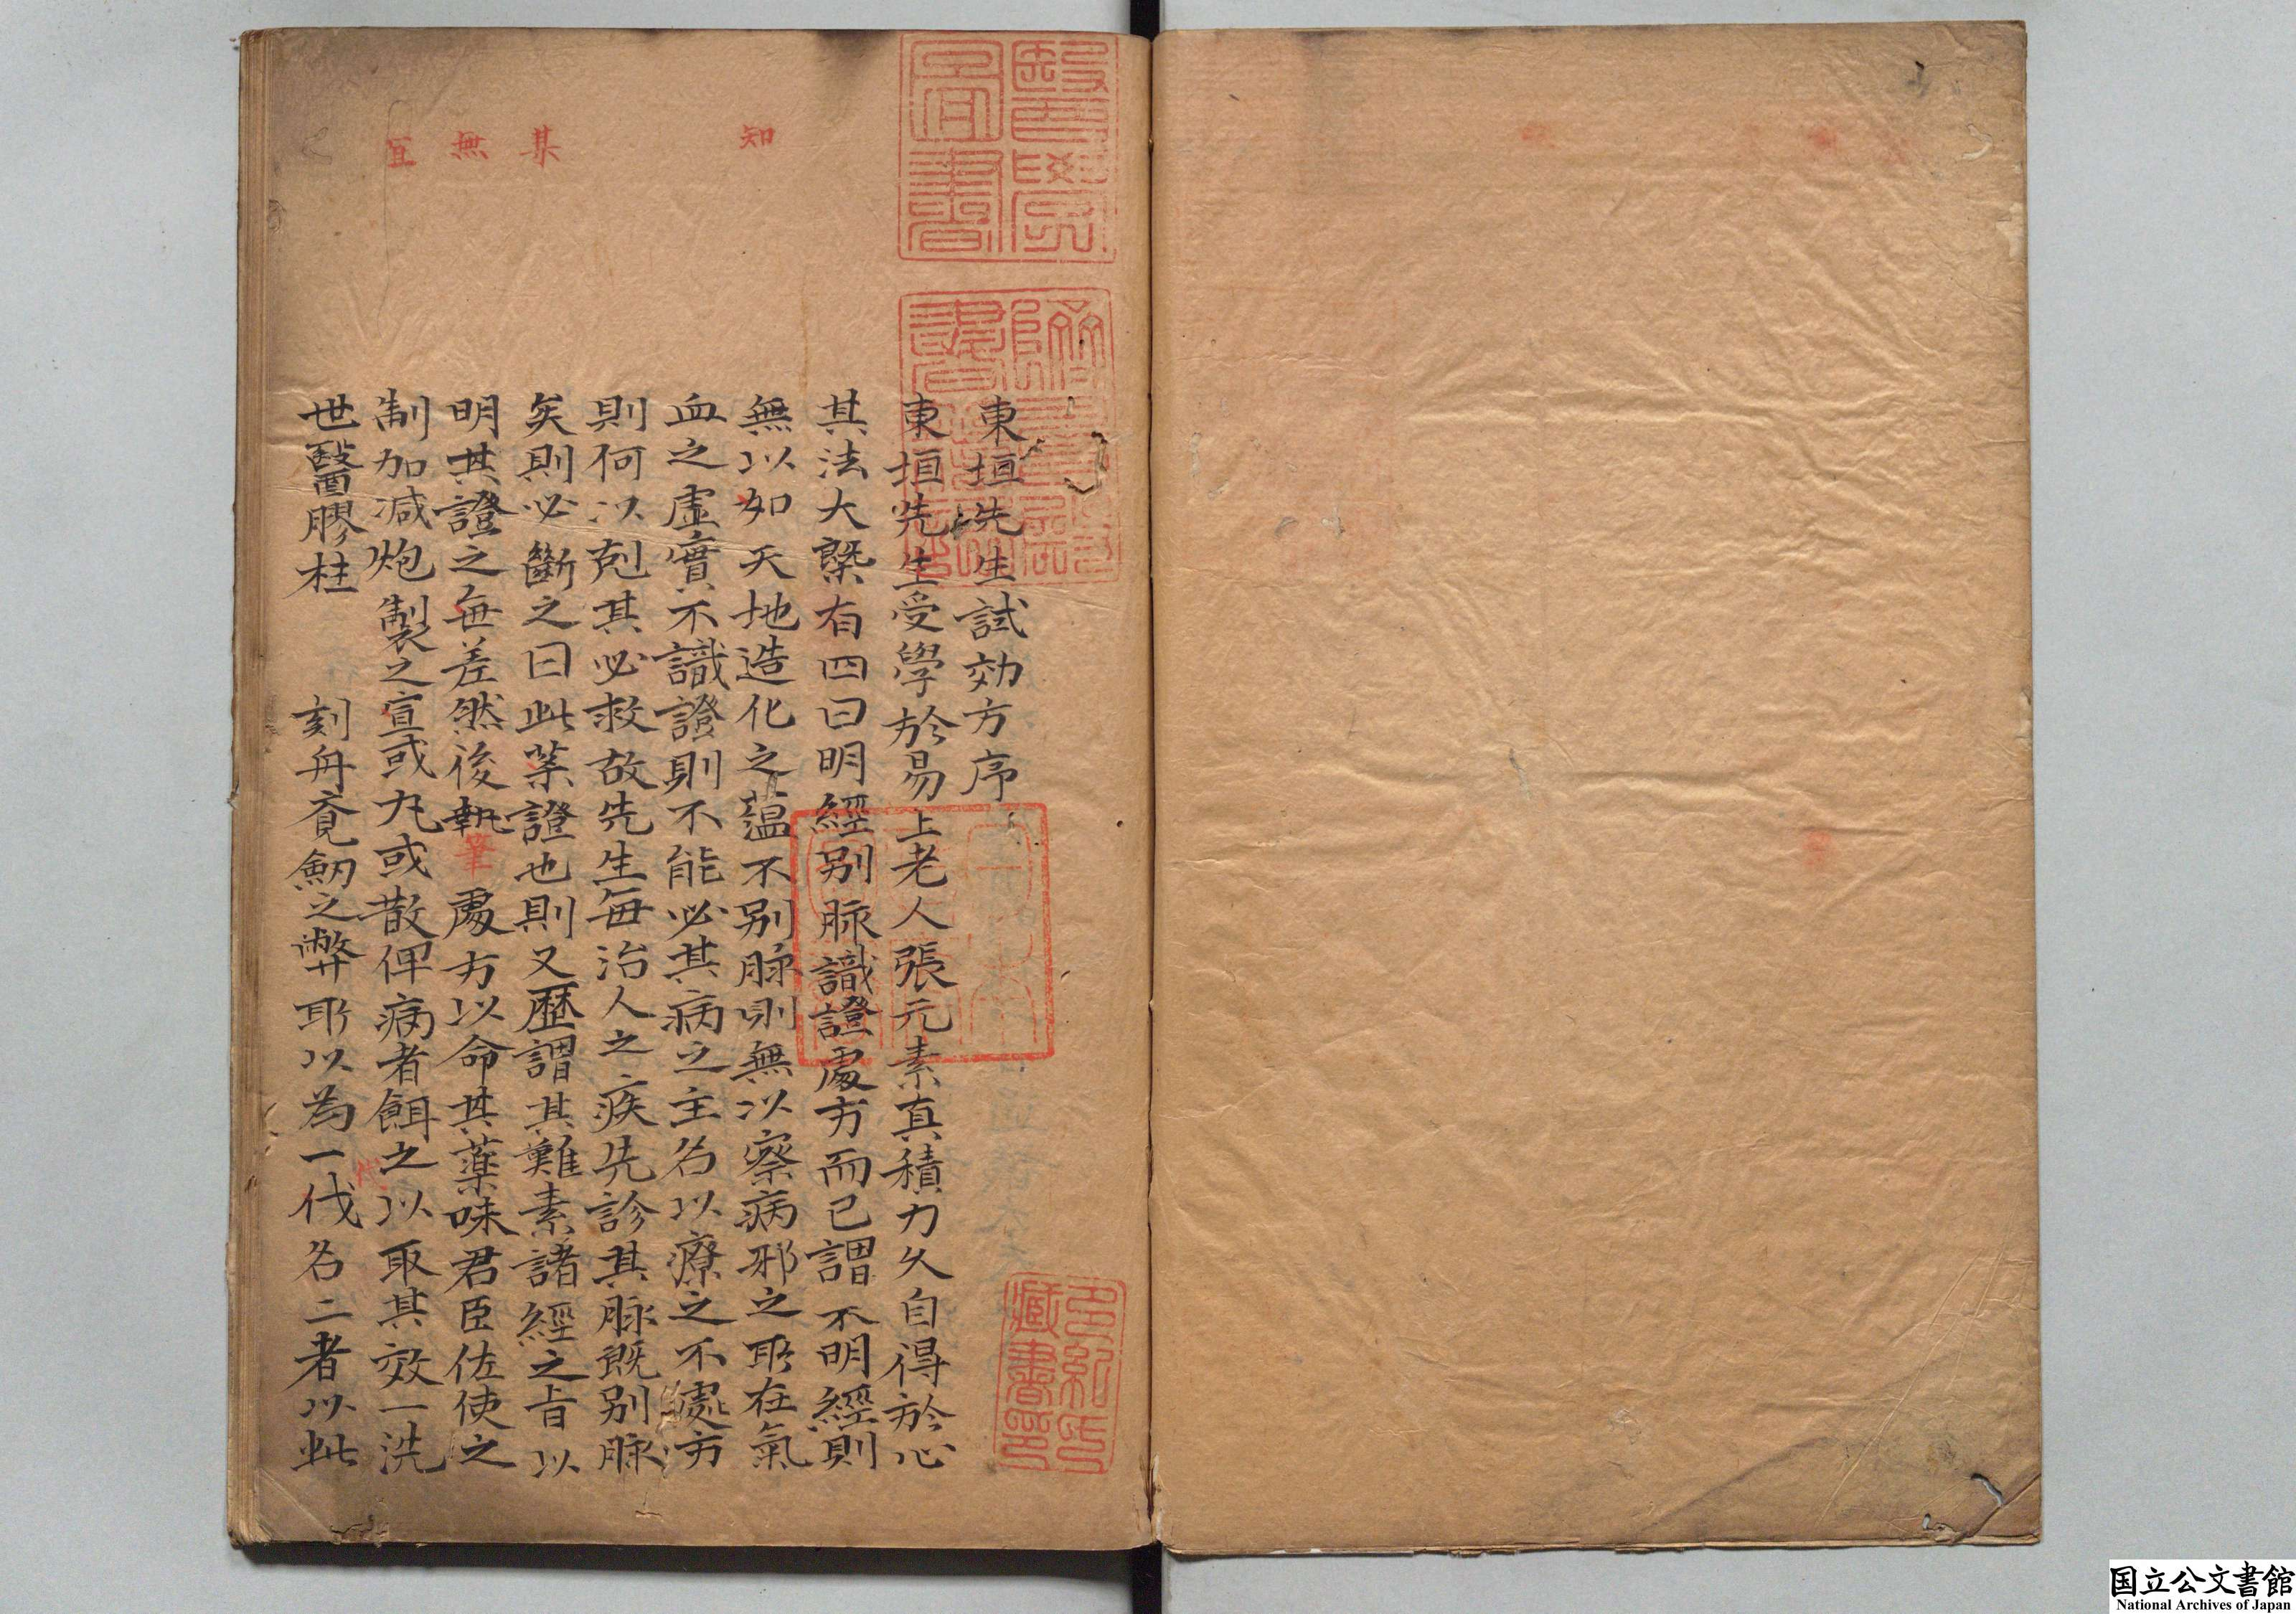 東垣先生試効方序
東垣先生受學於易上老人張元素真積力久自得於心
其法大槩有四曰明經別脉識證處方而已謂不明經則
無以如天地造化之蘊不別脉則無以察病邪之所在氣
血之虛實不識證則不能必其病之主名以療之不處方
則何以剋其必救故先生每治人之疾先診其脉既別脉
矣則必斷之曰此某證也則又歷謂其難素諸經之旨以
明其證之每差然後執筆處方以命其藥味君臣佐使之
制加减炮製之宣或丸或散俾病者餌之以取其效一洗
世醫膠柱 刻舟㐫兂劒之弊耶以為一伐名二者以此
知
某
無
宜
醫學
圖書
多紀氏
藏書印
国立公文書館
National Archives of Japan